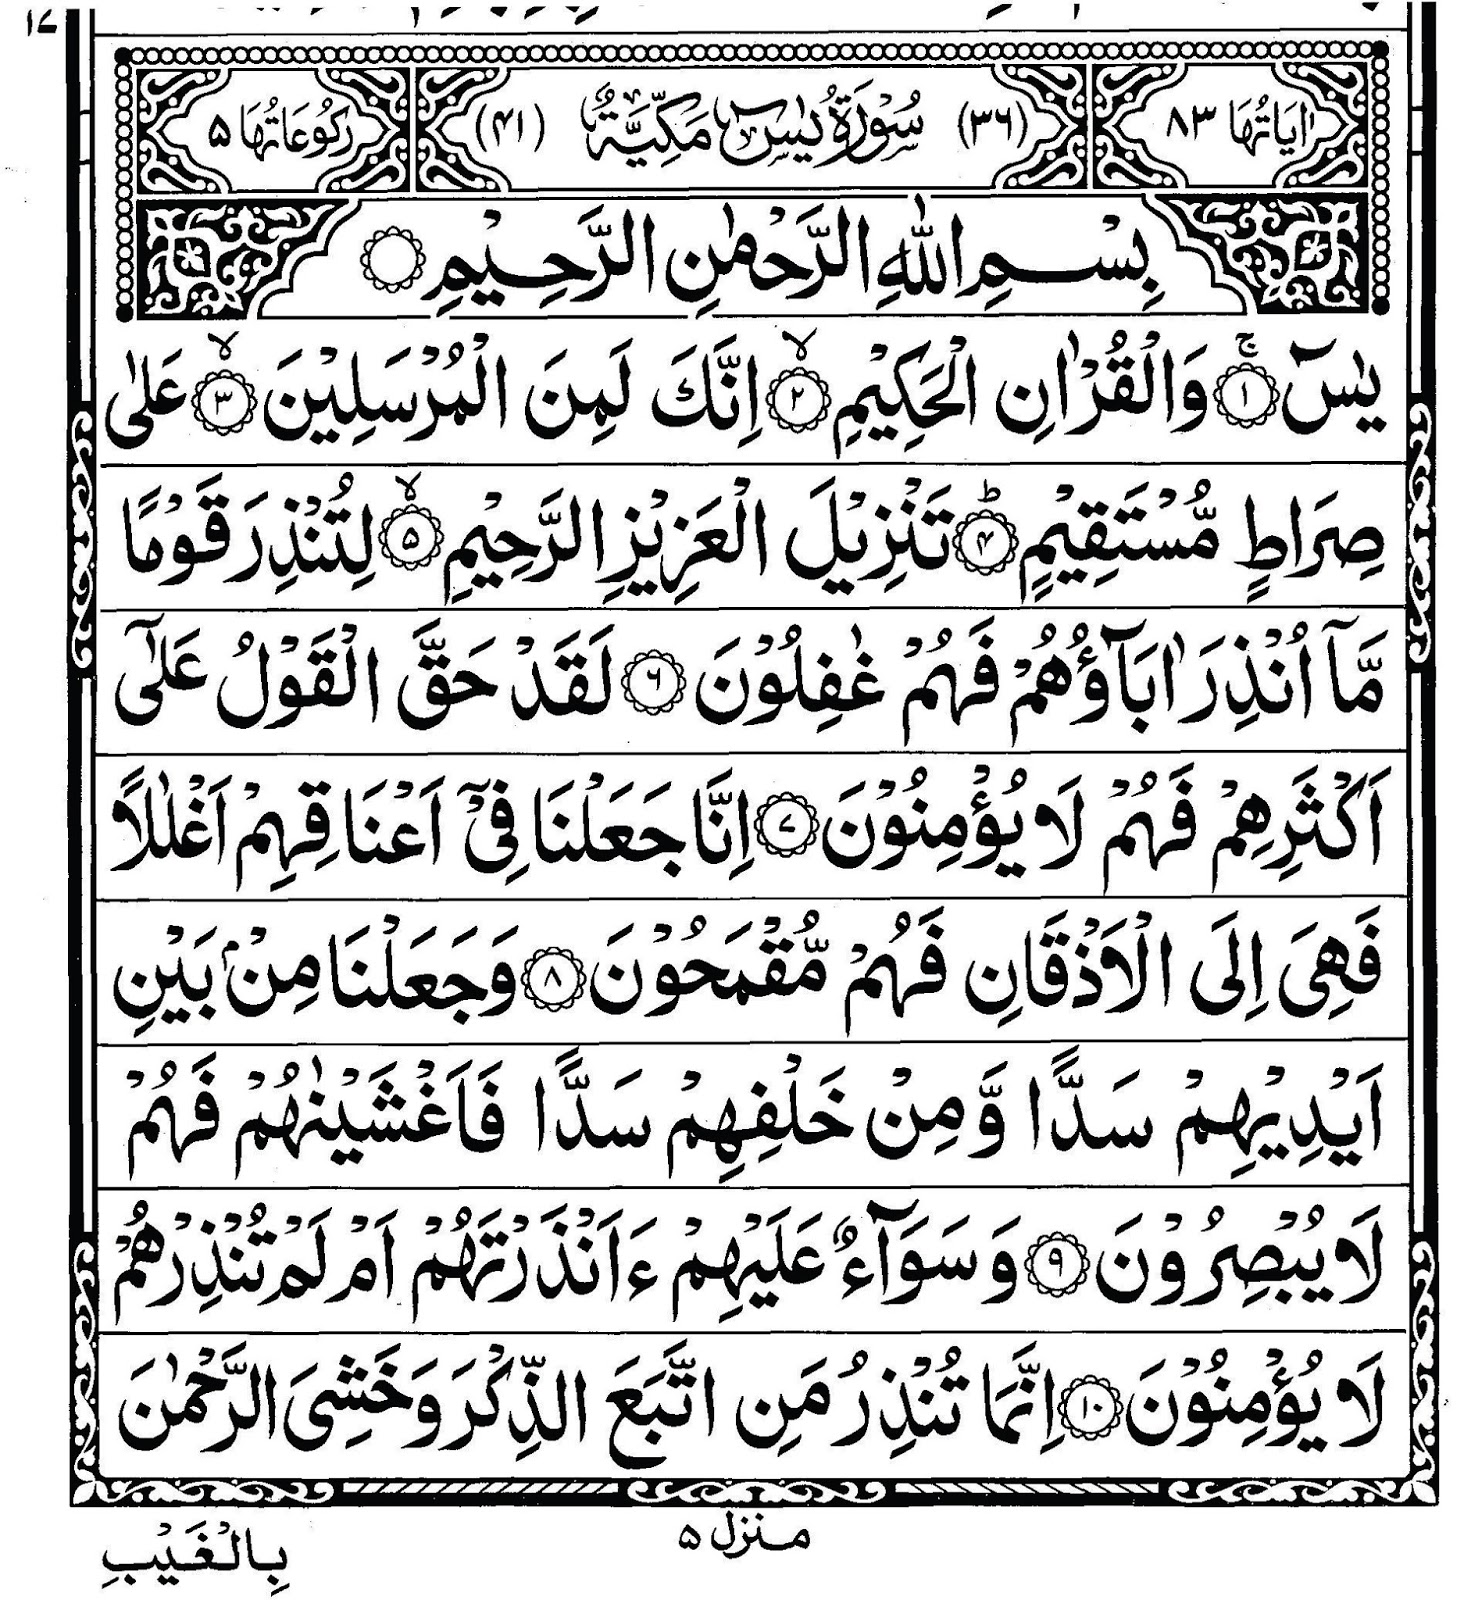 اٰيَاتُهَا ٨٣ (٣٦) سُوْرَةُ يٰسٓ مَكِّيَّةٌ (٤١) رُكُوْعَاتُهَا ۵
بِسْمِ اللّٰهِ الرَّحْمٰنِ الرَّحِيْمِ ۝
يٰسٓ ۚ﴿۱﴾ وَالْقُرْاٰنِ الْحَكِيْمِ ۙ﴿۲﴾ اِنَّكَ لَمِنَ الْمُرْسَلِيْنَ ۙ﴿۳﴾ عَلٰى
صِرَاطٍ مُّسْتَقِيْمٍ ؕ﴿۴﴾ تَنْزِيْلَ الْعَزِيْزِ الرَّحِيْمِ ۙ﴿۵﴾ لِتُنْذِرَ قَوْمًا
مَّآ اُنْذِرَ اٰبَآؤُهُمْ فَهُمْ غٰفِلُوْنَ ﴿۶﴾ لَقَدْ حَقَّ الْقَوْلُ عَلٰٓى
اَكْثَرِهِمْ فَهُمْ لَا يُؤْمِنُوْنَ ﴿۷﴾ اِنَّا جَعَلْنَا فِيْٓ اَعْنَاقِهِمْ اَغْلٰلًا
فَهِيَ اِلَى الْاَذْقَانِ فَهُمْ مُّقْمَحُوْنَ ﴿۸﴾ وَجَعَلْنَا مِنْۢ بَيْنِ
اَيْدِيْهِمْ سَدًّا وَّمِنْ خَلْفِهِمْ سَدًّا فَاَغْشَيْنٰهُمْ فَهُمْ
لَا يُبْصِرُوْنَ ﴿۹﴾ وَسَوَآءٌ عَلَيْهِمْ ءَاَنْذَرْتَهُمْ اَمْ لَمْ تُنْذِرْهُمْ
لَا يُؤْمِنُوْنَ ﴿۱۰﴾ اِنَّمَا تُنْذِرُ مَنِ اتَّبَعَ الذِّكْرَ وَخَشِيَ الرَّحْمٰنَ
منزل ۵
بِالْغَيْبِ